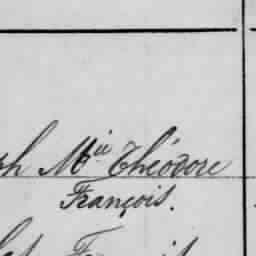 ph Mie Théodore
François.